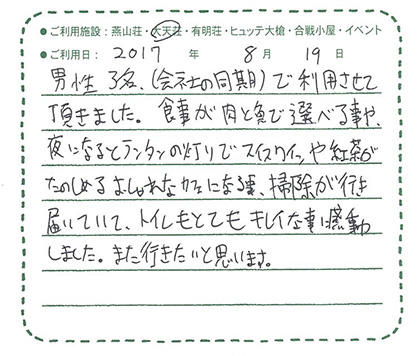 ● ご利用施設：燕山荘・大天荘・有明荘・ヒュッテ大槍・合戦小屋・イベント
● ご利用日： 2017 年 8 月 19 日
男性3名、(会社の同期)で利用させて
頂きました。食事が肉と魚で選べる事や、
夜になるとランタンの灯りでスイスワインや紅茶が
たのしめるおしゃれなカフェになる事、掃除が行き
届いていて、トイレもとてもキレイな事に感動
しました。また行きたいと思います。